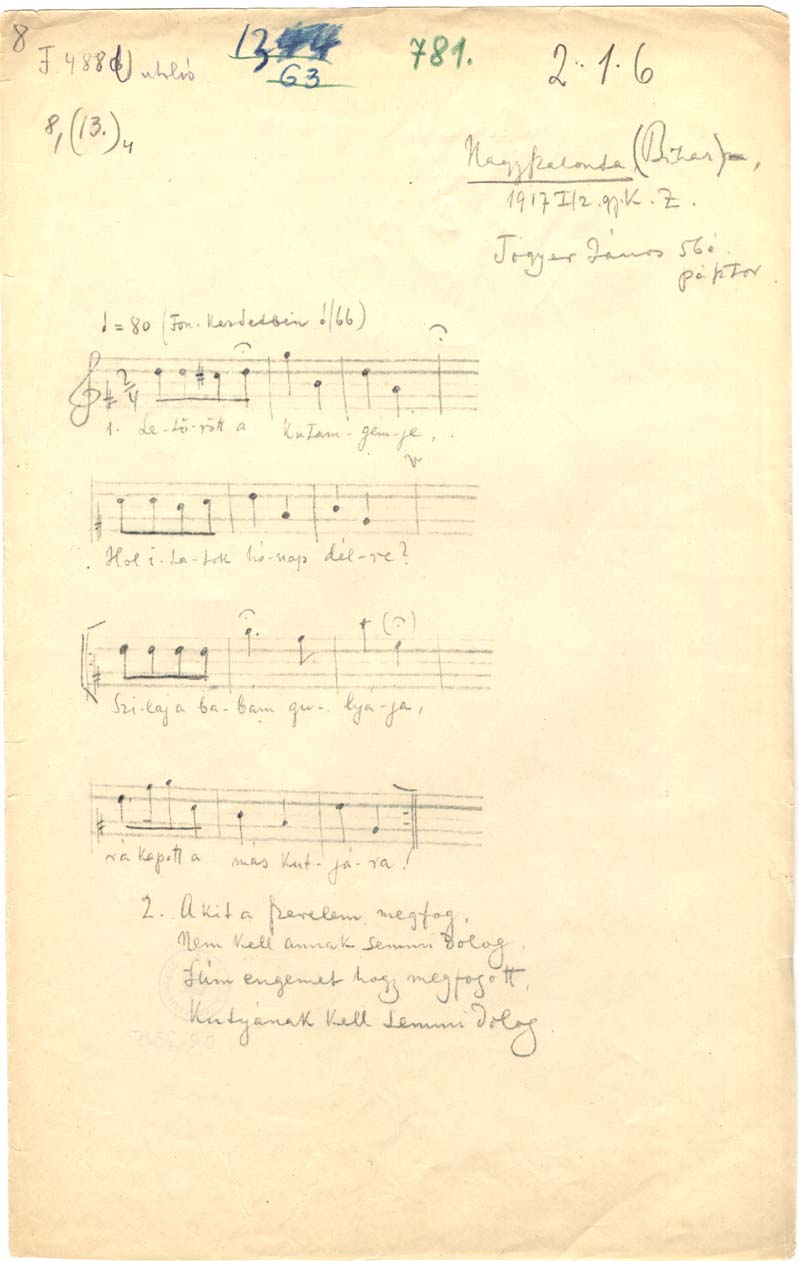 8
F. 488 d) utolsó 13 63 781. 2. 1. 6
8, (13.) 4
Nagyszalonta (Bihar),
1917 I/2. gy. K. Z.
János 56 é.
pásztor
= 80 (Fon. Kezdetben /66)
2/4
1. Le-tö-rött a kutam-gém-je,
V
Hol i-ta-tok hó-nap dél-re?
Szi-laj a ba-bám gu-lyá-ja,
rá kapott a más kut-já-ra!
2. Akit a szerelem megfog,
Nem kell annak semmi dolog,
Lám engemet hogy megfogott,
Kutyának kell semmi dolog.